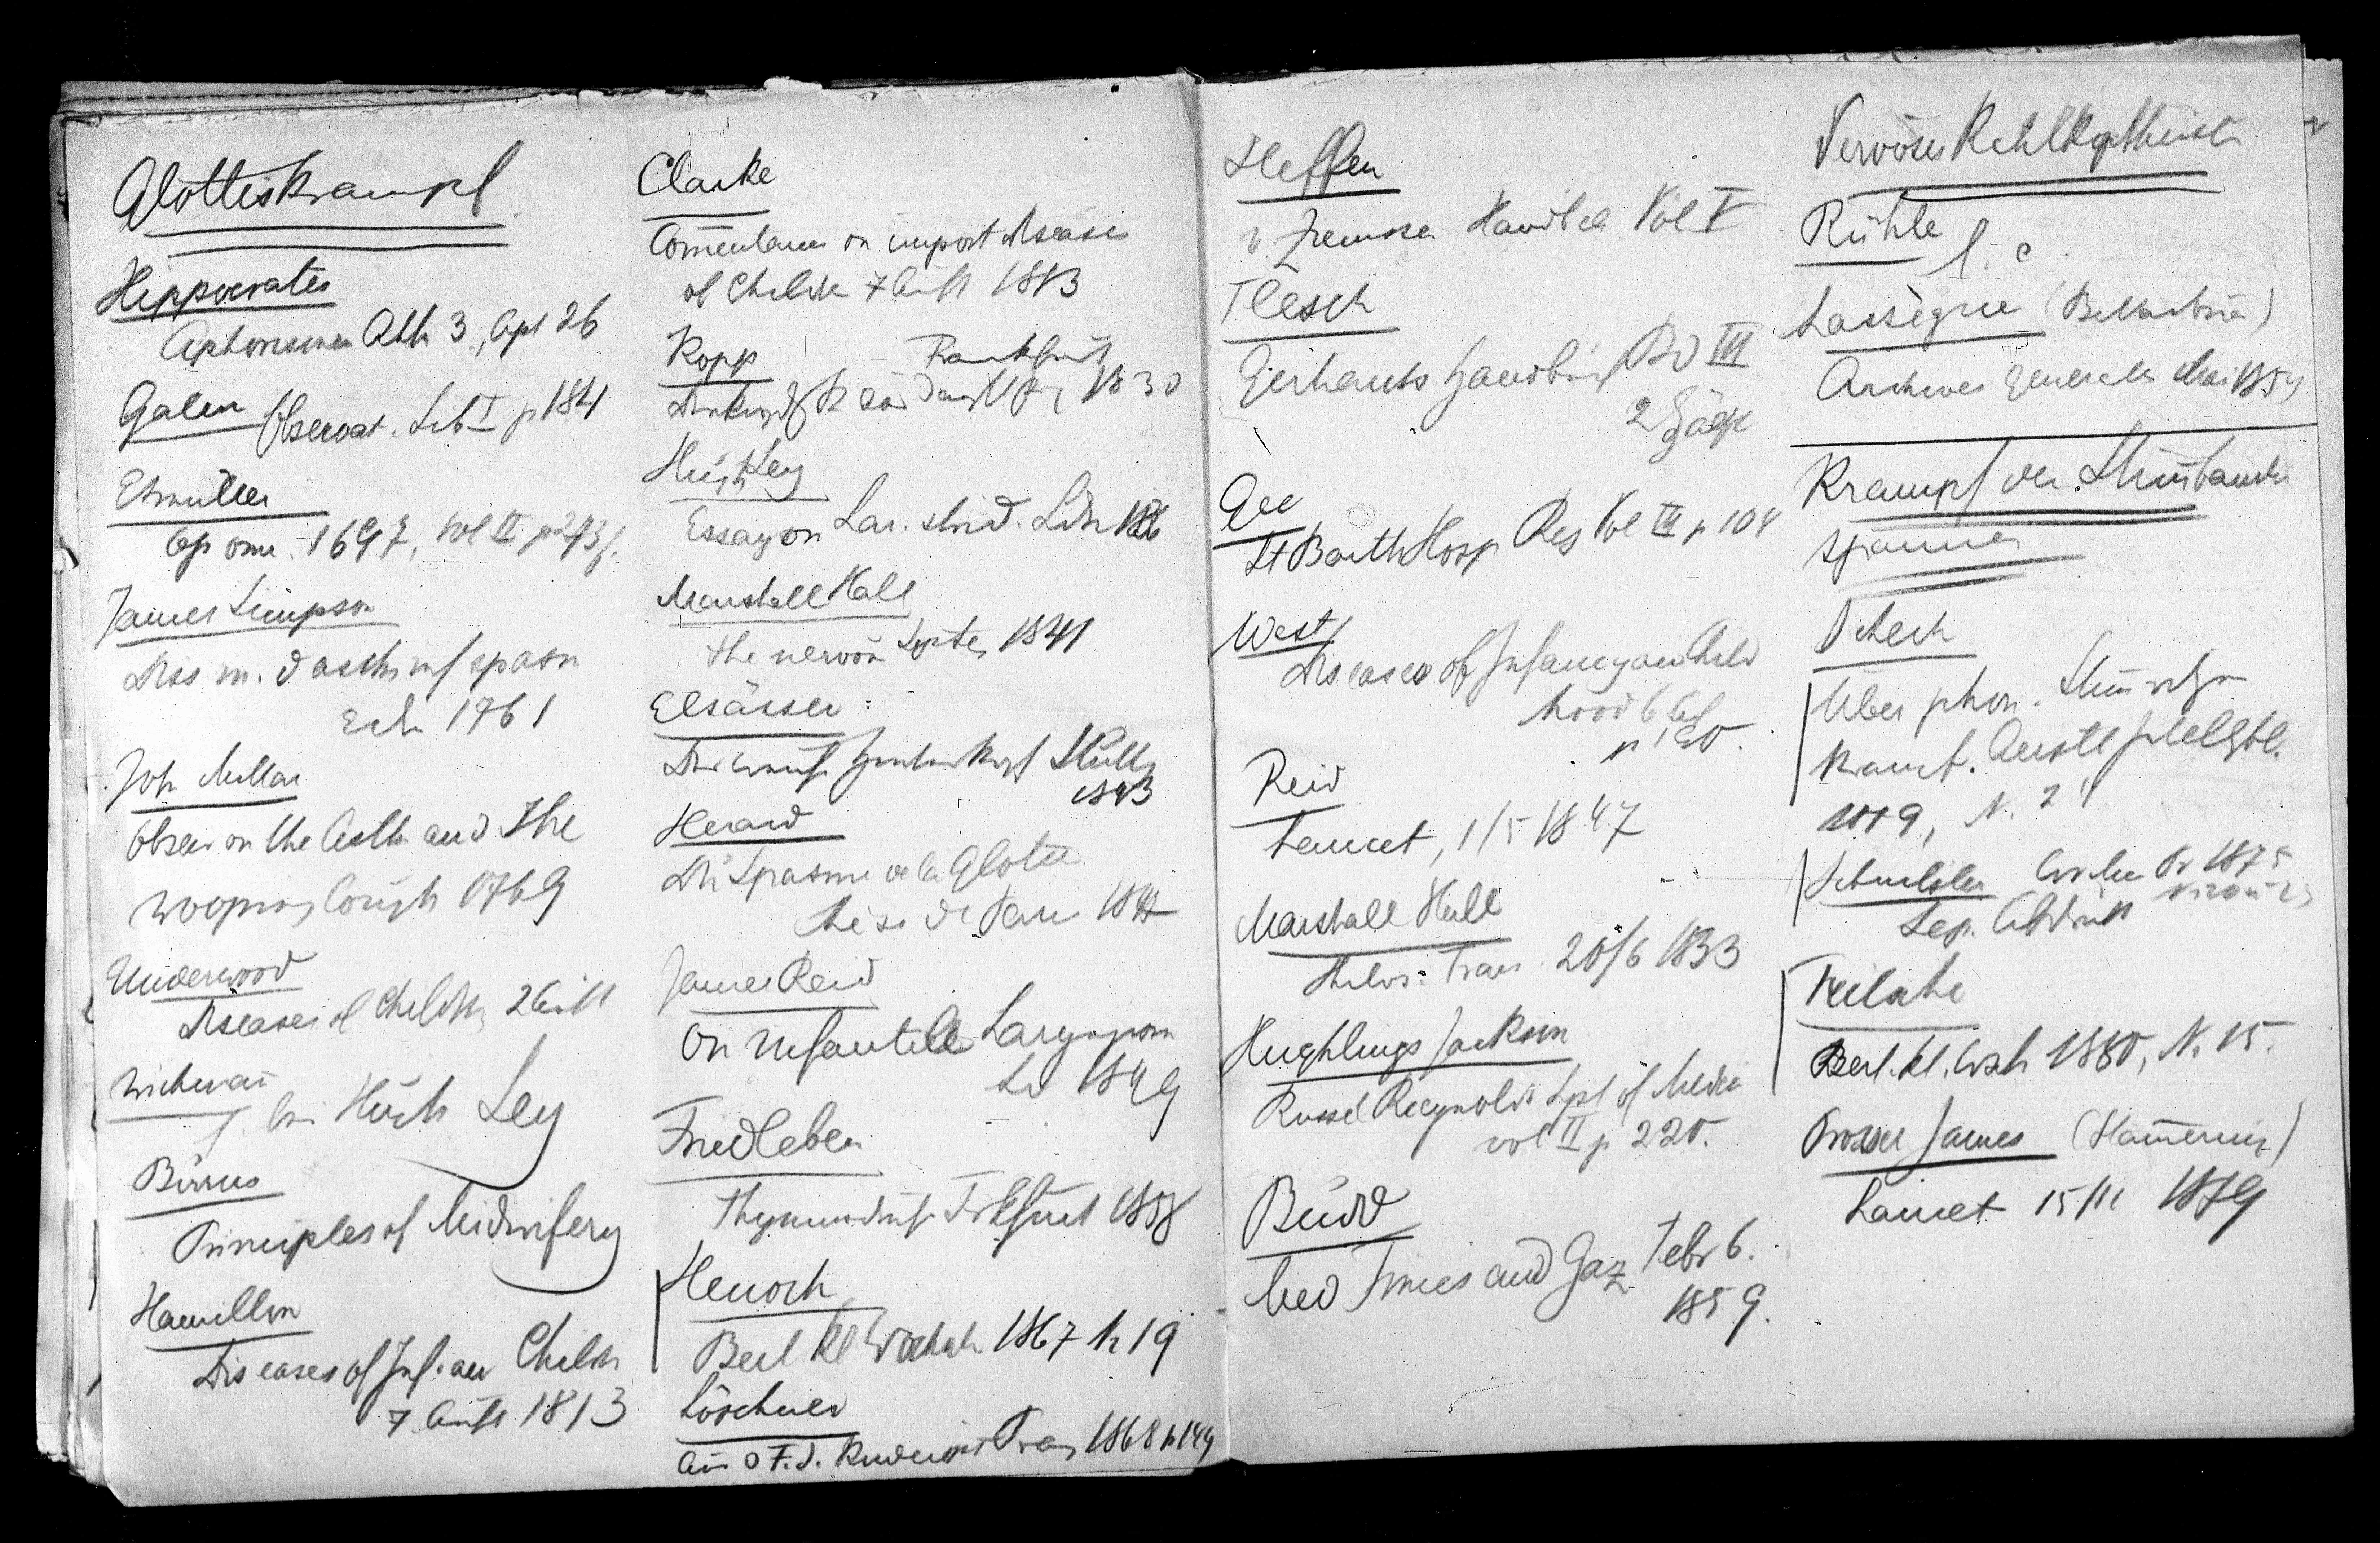 Glottiskrampf
Hippocrates
Aphorismen Abth 3, Aph 26
Galen Observat. Lib I p 184
Etmüller
Op omn. 1697, Vol II p 273
James Simpson
Diss in. d asthm inf spasm
Edi 1761
Joh Millar
Observ on the Asth and the
Wooping Cough 1769
Underwood
Diseases of Childr 2 Aufl
Wichman
f. bei Hugh Ley
Burns
Principles of Midwifery
Hamilton
Diseases of Inf. an Childr
7 Aufl 1813
Clarke
Comentaries on import diseases
of Childr 7 Aufl 1813
Kopp Frankfurt
1830
Hugh Ley
Essay on Lar. strid. Ldn 1836
Marshall Hall
the nervous System 1841
Elsässer
Der weiche Hinterkopf Stuttg
1843
Herard
Du Spasme de la Glotte
these de Paris
James Reid
On infantile Laryngosm
Ld 1849
Friedleben
Thymusdrüse Frkfurt 1858
Henoch
Berl kl Wochsch 1867 N 19
Löschner
Aus d F. J. Kinderspit Prag 1868 p 144
Steffen
v. Ziemssen Handbch Vol V
Flesch
Gerhardts Handbuch Bd III
2 Hälfte
Gee
St Barth Hosp Rep Vol III p 104
West
Diseases of Infancy and Child
hood 6 Afl
Reid
Lancet, 1/5 1847
Marshall Hall
Philos. Trans. 20/6 1833
Hughlings Jackson
Russel Reynolds Syst of Medic
vol II p 220.
Budd
Med Times and Gaz Febr 6.
1859.
Nervöser Kehlkopfhusten
Rühle l. c.
Lassègue
Archives generales Mai 1854
Krampf der Stimbänder
spanner
Schech
Über phon. Stimritzen
krampf. Aerztl Intelligbl.
1879, N. 2
Schnitzler Wien Pr 1875
Sep. Abdruck
Fritsche
Berl. kl. Wsch 1880, N. 15.
Prosser James (Hamering)
Lancet 15/11 1879